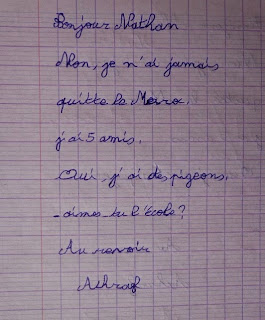 Bonjour Nathan
Non, je n'ai jamais
quitte le Maroc.
j'ai 5 amis.
Oui, j'ai des pigeons.
-aimes-tu l'école?
Au revoir
Achraf